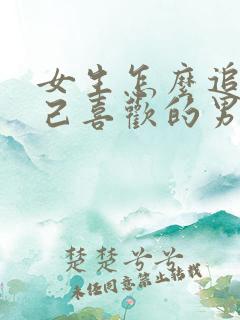 女生怎麼追
己喜歡的男
楚楚兮兮
未经同意禁止转载